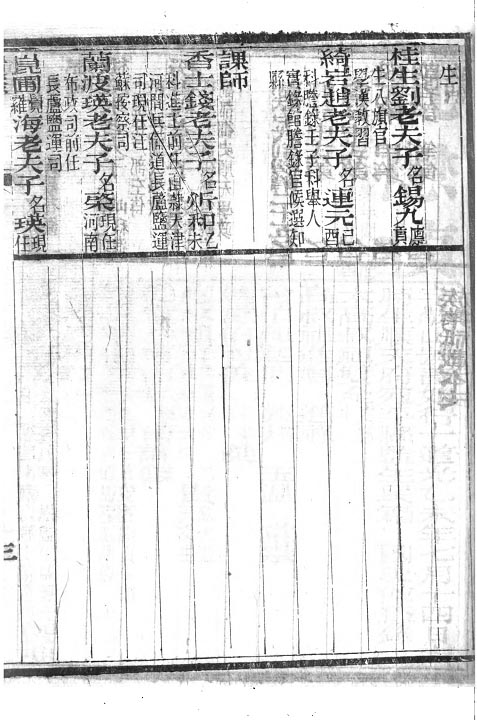 生
桂生劉老夫子名錫九廩貢
生八旗官
學漢教習
綺岩趙老夫子名連元己酉
科謄錄壬子科舉人
實錄館謄錄官候選知
縣
課師
香士錢老夫子名炘和乙未
科進士前任直隸天津
河間兵備道長蘆鹽運
司現任江
蘇按察司
蘭坡瑛老夫子名棨現任河南
布政司前任
長蘆鹽運司
圃海老夫子名瑛現任
三